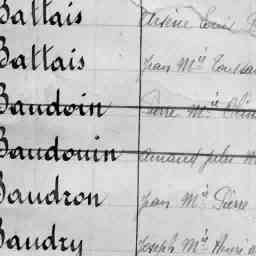 Battais Arsène Louis
Battais Jean Mie Toussa
Baudoin Pierre Mie
Baudouin Armand Jules M
Baudron Jean Mie Pierre
Baudry Joseph Mie Henri